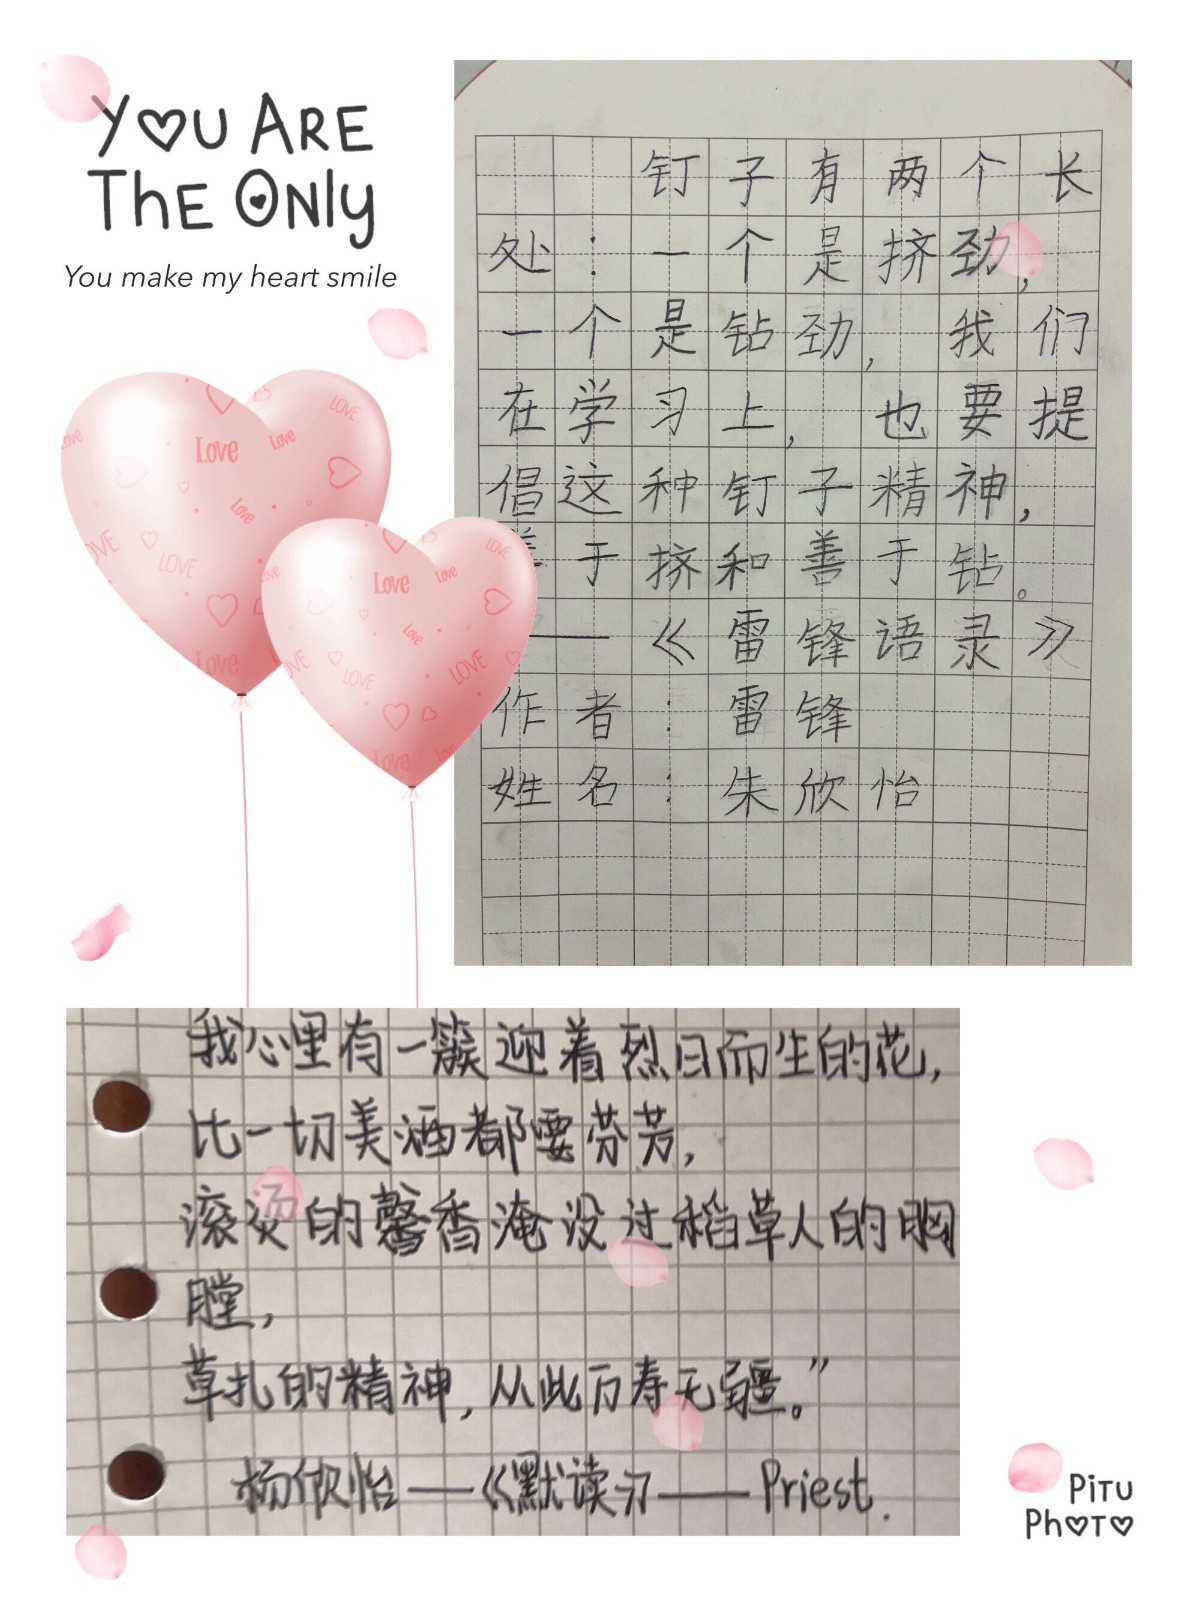 YOU ARE
THE ONLY
You make my heart smile
钉子有两个长
处：一个是挤劲，
一个是钻劲，我们
在学习上，也要提
倡这种钉子精神，
善于挤和善于钻。
——《雷锋语录》
作者：雷锋
姓名：朱欣怡
Love
Love
LOVE
Love
LOVE
Love
Love
Love
LOVE
Love
LOVE
LOVE
Love
我心里有一簇迎着烈日而生的花，
比一切美酒都要芬芳，
滚烫的馨香淹没过稻草人的胸
膛，
草扎的精神，从此万寿无疆。”
杨欣怡——《默读》——Priest.
PiTU
PHOTO